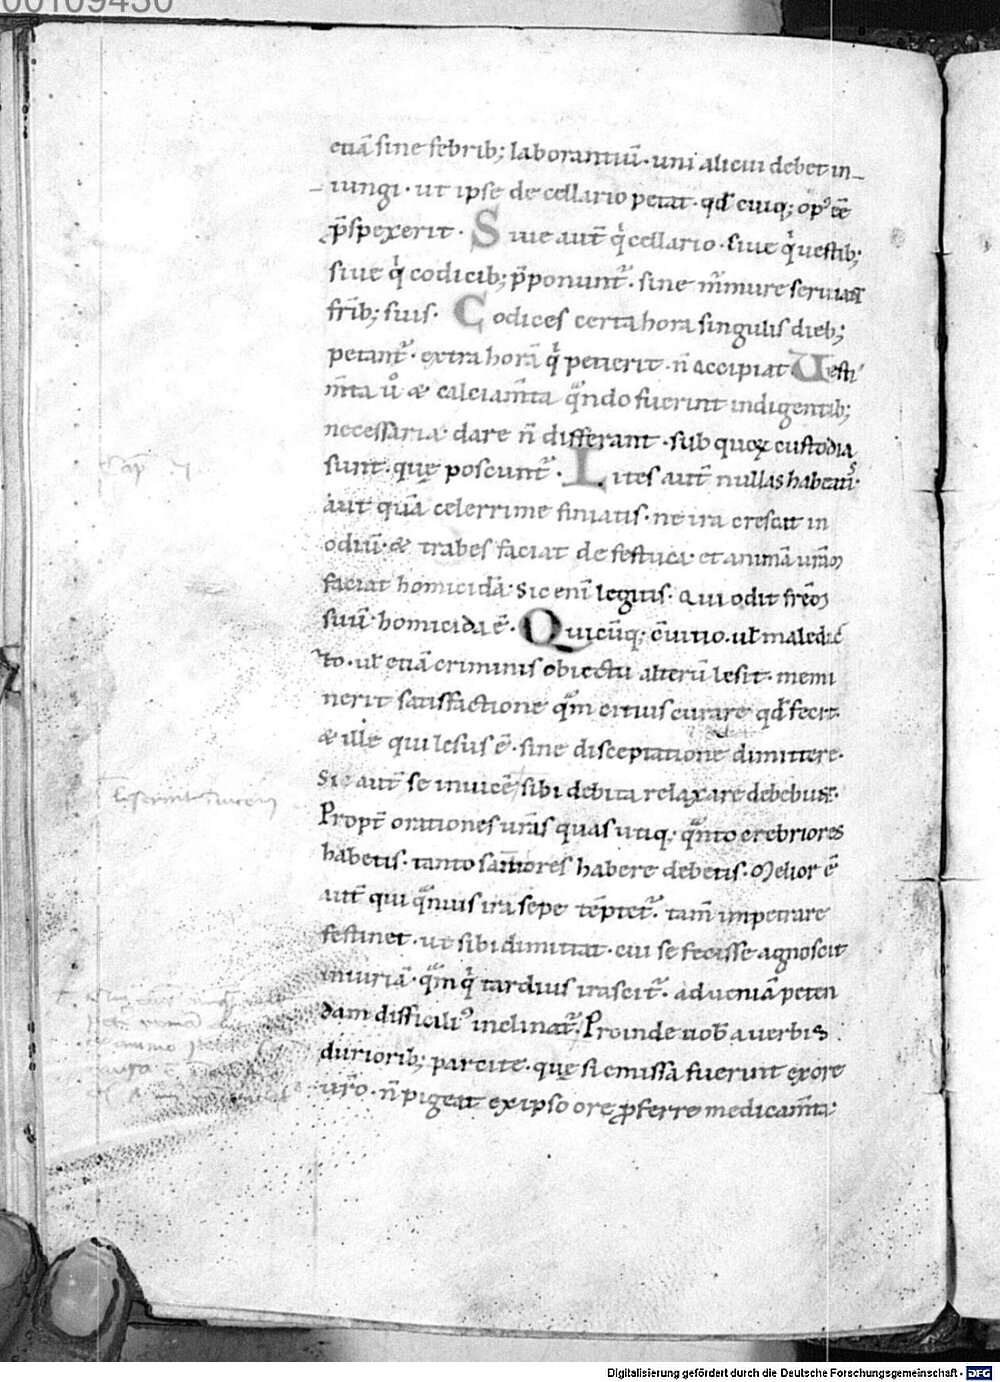 00109430
etiā sine febrib; laborantiū · uni alicui debet in-
iungi · ut ipse de cellario petat · qđ cuiq; op᾽ eē
p̄spexerit · Siue aut̄ q̇ cellario · siue q̇ uestib;
siue q̇ codicib; p̄ponunt̄ · sine m̄mure seruiāt
frīb; suis · Codices certa hora singulis dieb;
petant̄ · extra horā q̇ petierit · n̄ accipiat Uesti
m̄ta ů & calciam̄ta qͣndo fuerint indigentib;
necessaria dare n̄ differant · sub quoꝝ custodia
sunt · quę poscunt̄ · Lites aut̄ nullas habeatis ·
aut quā celerrime finiatis · ne ira crescat in
odiū · & trabes faciat de festuca · et animā urām
faciat homicidā · Sic enī legitis · Qui odit frēm
suū · homicida ē · Quicūq; c̄uitio · uł maledic
to · uł etiā criminis obiectu alterū lesit · memi
nerit satisfactione qͣm citius curare qđ fecit ·
& ille qui lesus ē · sine disceptatione dimittere ·
Sic aut̄ se inuicē sibi debita relaxare debebunt ·
Propt̄ orationes urās quas utiq; qͣnto crebriores
habetis · tanto sanctiores habere debetis · Melior ē
aut̄ qui qͣmuis ira sepe tēptet̄ · tam̄ impetrare
festinet · ut sibi dimittat · cui se fecisse agnoscit
iniuriā · qͣm q̇ tardius irascit̄ · ad ueniā peten
dam difficili᾽ inclinat̄ · Proinde uob̄ a uerbis
duriorib; parcite · quę si emissa fuerint ex ore
uro · n̄ pigeat ex ipso ore ꝓferre medicam̄ta ·
Digitalisierung gefördert durch die Deutsche Forschungsgemeinschaft - DFG